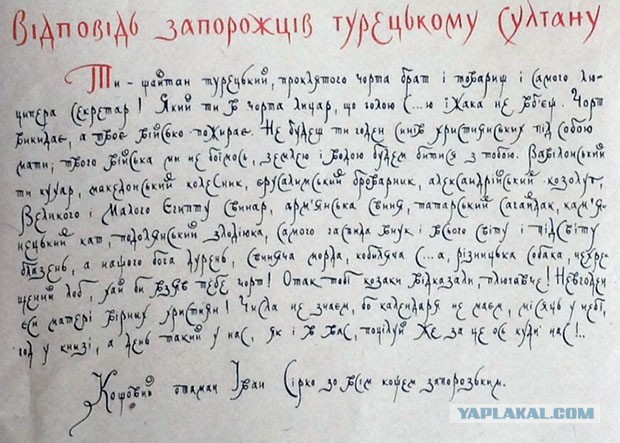 Відповідь запорожців турецькому султану
Ти - шайтан турецький, проклятого чорта брат і товариш і самого лю-
ципера секретар! Який ти в чорта лицар, що голою с...ю їжака не вб'єш. Чорт
викидає, а твоє військо пожирає. Не будеш ти годен синів християнських під собою
мати; твого війська ми не боїмось, землею і водою будем битися з тобою. Вавілонський
ти кухар, македонський колесник, єрусалимський броварник, александрійський козолуп,
Великого і Малого Єгипту свинар, арм'янська свиня, татарський сагайдак, кам'я-
нецький кат, подолянський злодіюка, самого гаспида внук і всього світу і підсвіту
блазень, а нашого бога дурень, свиняча морда, кобиляча с...а, різницька собака, нехре-
щений лоб, хай би взяв тебе чорт! Отак тобі козаки відказали, плюгавче! Невгоден
єси матері вірних християн! Числа не знаєм, бо календаря не маєм, місяць у небі,
год у книзі, а день такий у нас, як і в вас, поцілуй же за це ось куди нас!..
Кошовий отаман Іван Сірко зо всім кошем запорозьким.
YAPLAKAL.COM